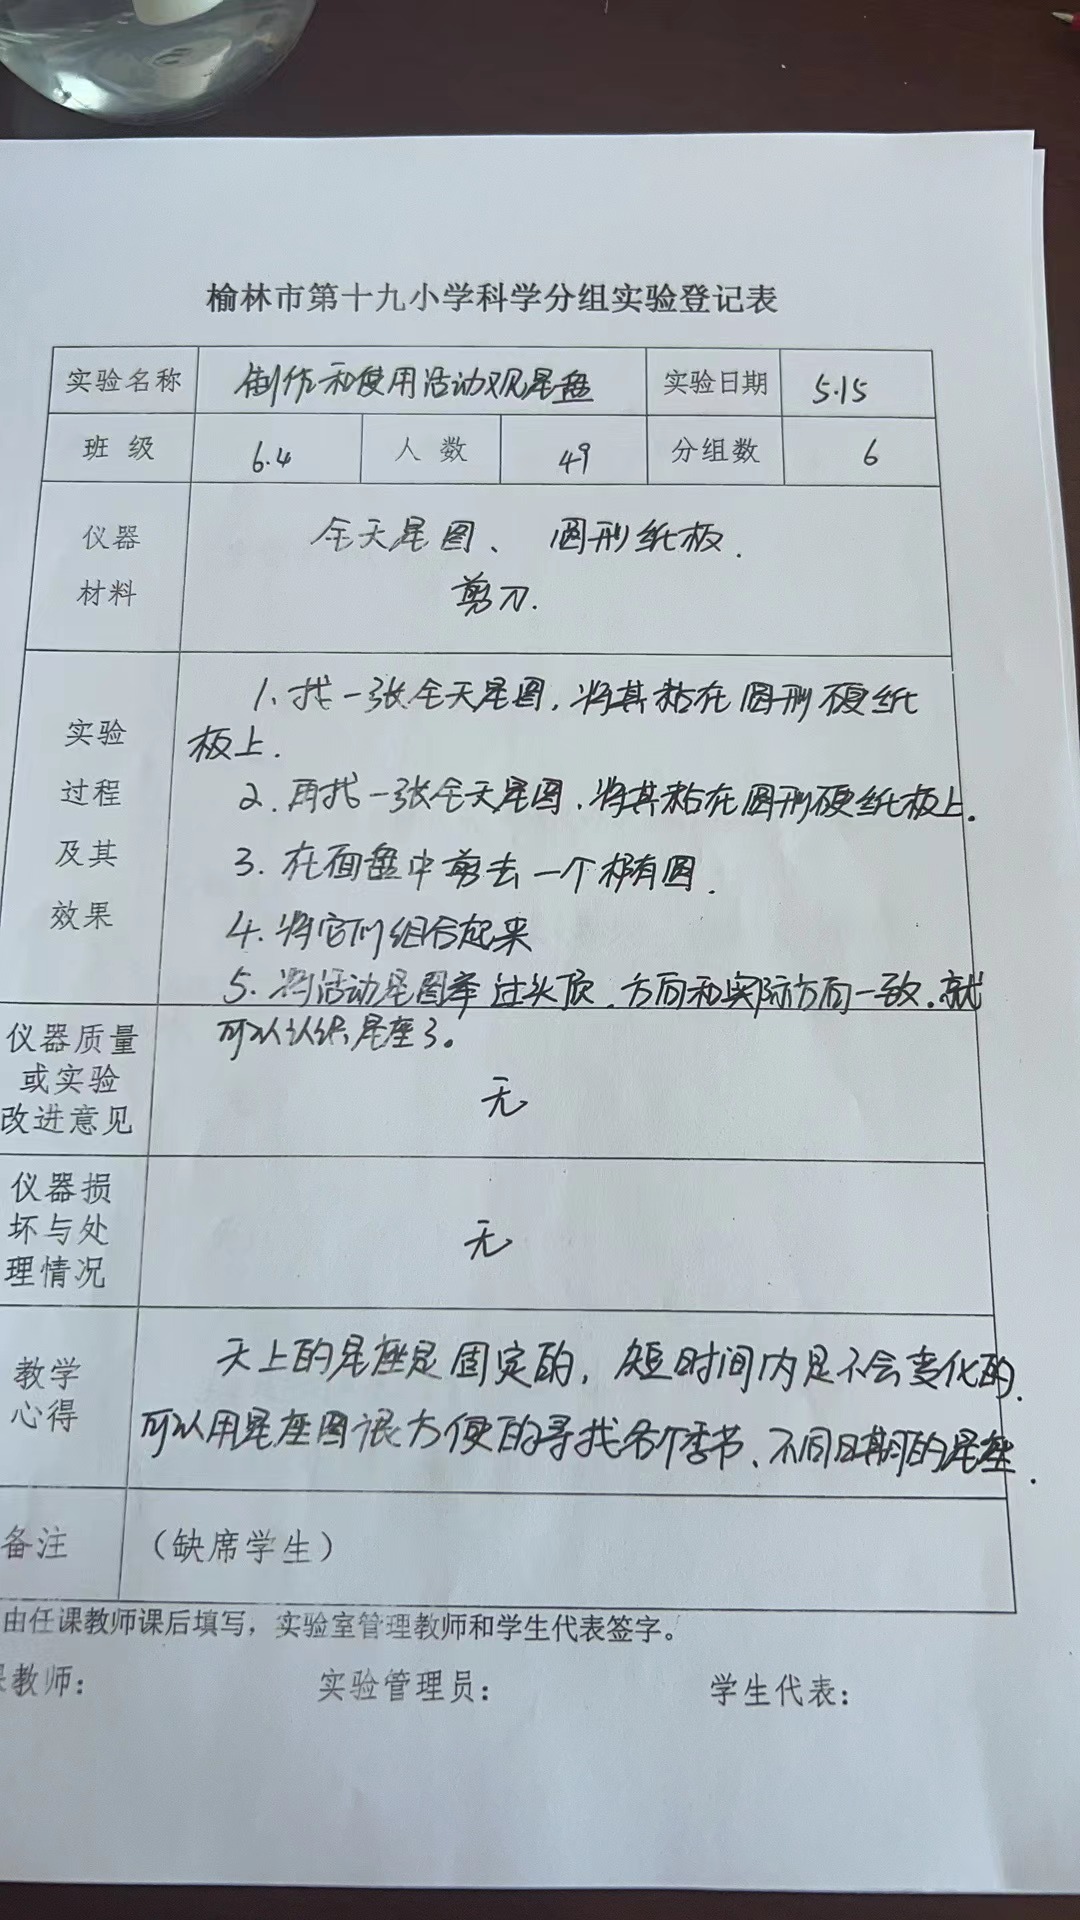 榆林市第十九小学科学分组实验登记表
实验名称 制作和使用活动观星盘 实验日期 5.15
班级 6.4 人数 49 分组数 6
仪器材料 全天星图、圆形纸板.
剪刀.
实验过程及其效果
1.找一张全天星图,将其粘在圆形硬纸
板上.
2.再找一张全天星图,将其粘在圆形硬纸板上.
3.在面盘中剪去一个椭圆.
4.将它们组合起来
5.将活动星图举过头顶,方向和实际方向一致,就
可以认识星座了。
仪器质量或实验改进意见 无
仪器损坏与处理情况 无
教学心得
天上的星座是固定的,短时间内是不会变化的.
可以用星座图很方便的寻找各个季节、不同日期的星座.
备注 (缺席学生)
由任课教师课后填写,实验室管理教师和学生代表签字。
课教师: 实验管理员: 学生代表: